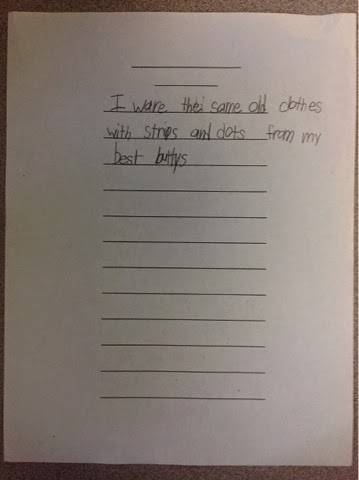 I ware the same old clothes
with strips and dots from my
best buttys